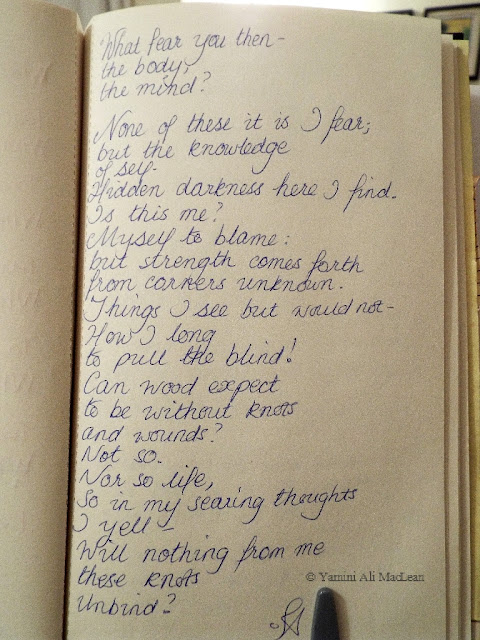 What fear you then -
the body,
the mind?
None of these it is I fear;
but the knowledge
of self.
Hidden darkness here I find.
Is this me?
Myself to blame:
but strength comes forth
from corners unknown.
Things I see but would not -
How I long
to pull the blind!
Can wood expect
to be without knots
and wounds?
Not so.
Nor so life,
So in my searing thoughts
I yell -
Will nothing from me
these knots
Unbind?
© Yamini Ali MacLean